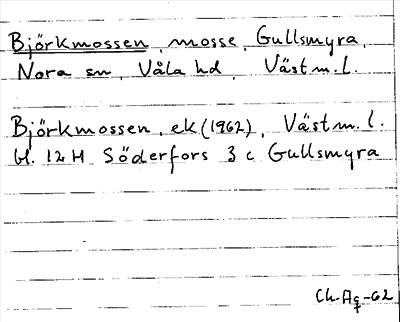 Björkmossen, mosse, Gullsmyra,
Nora sn, Våla hd, Västm. l.
Björkmossen, ek (1962), Västm. l.
bl. 12 H Söderfors 3 c Gullsmyra
Ch. Ag-62